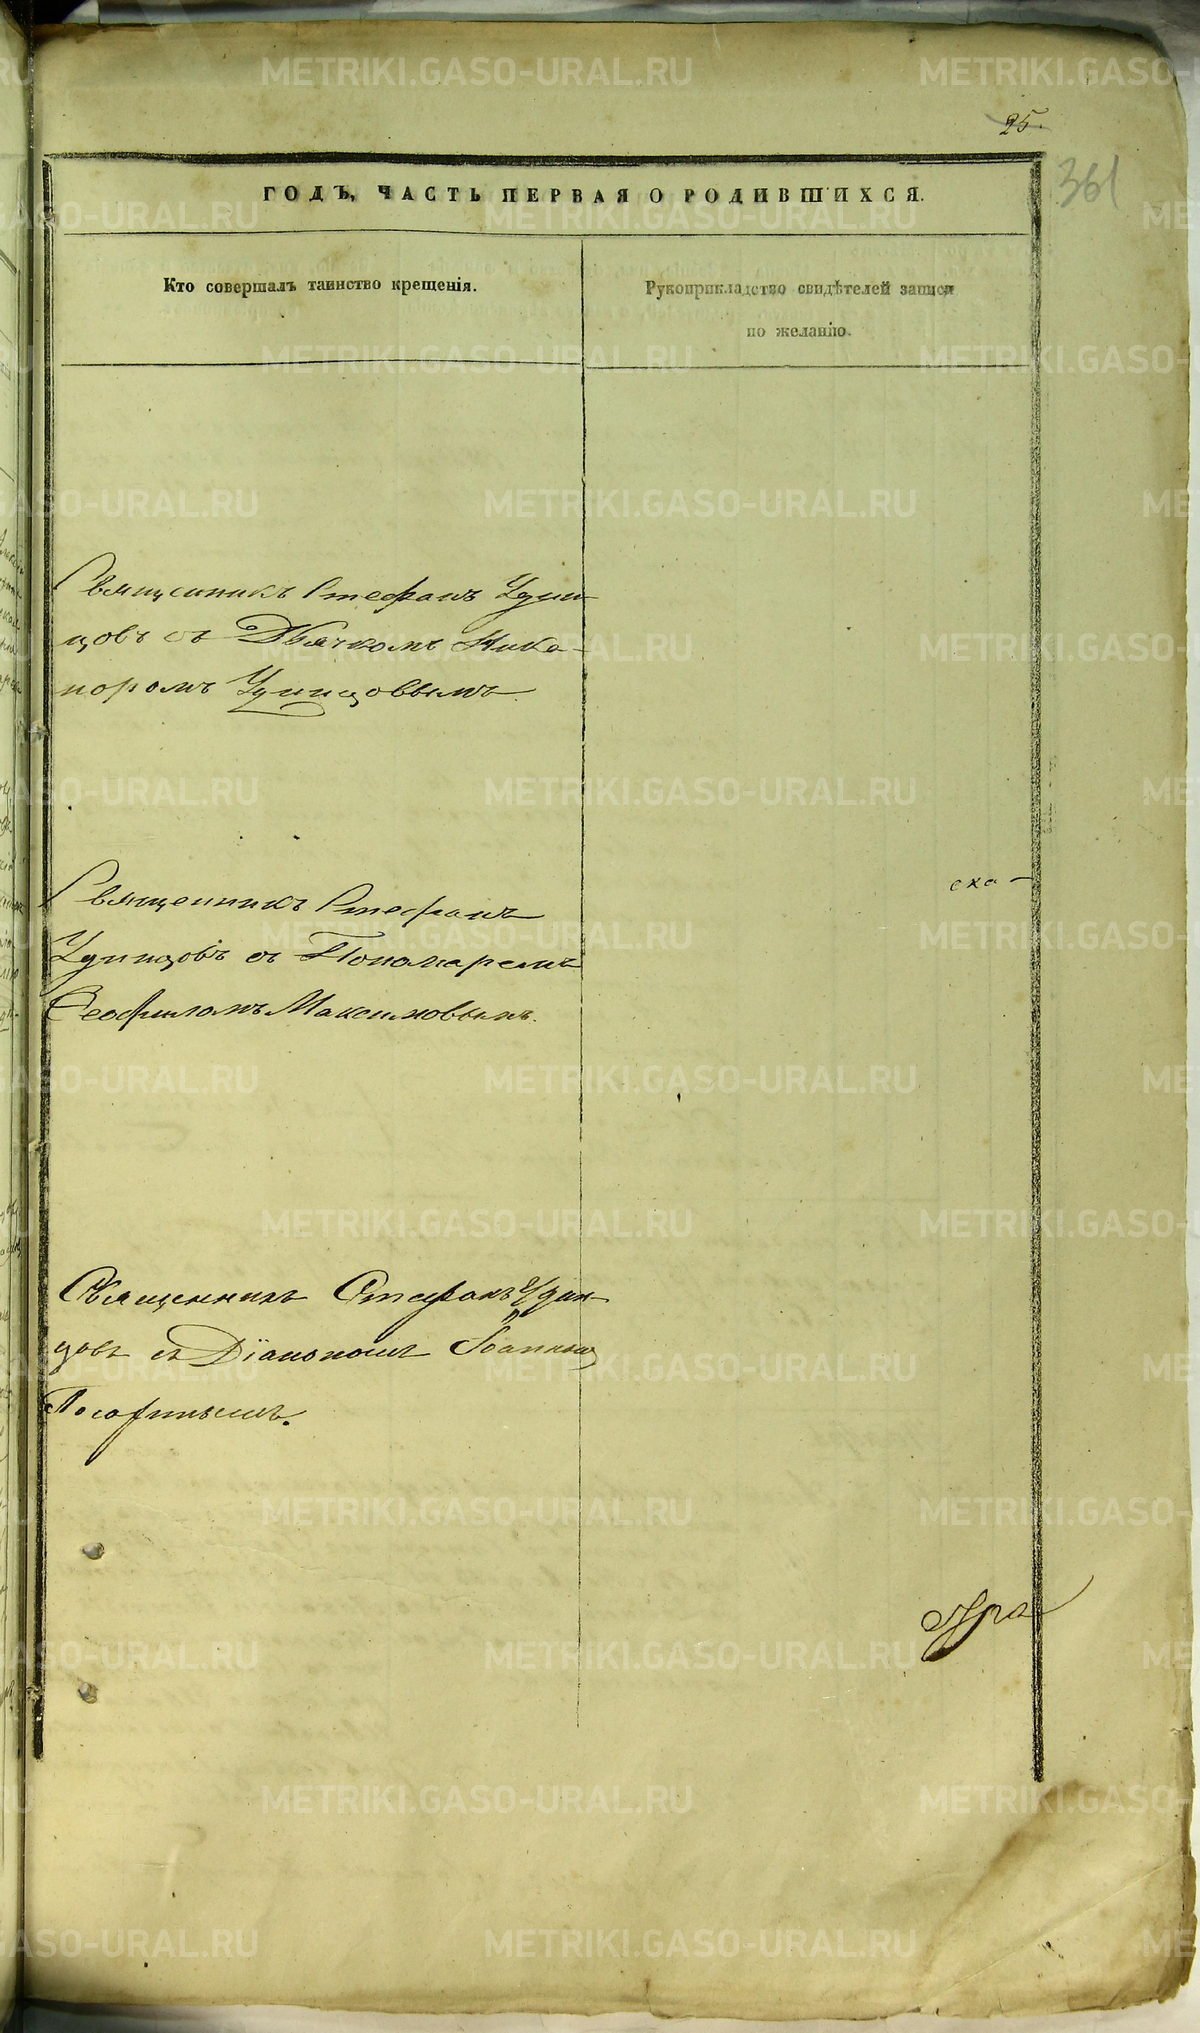 25.
361
ГОДЪ, ЧАСТЬ ПЕРВАЯ О РОДИВШИХСЯ.
Кто совершалъ таинство крещенія.
Рукоприкладство свидѣтелей записи
по желанію.
Священникъ Стефанъ Удин-
цовъ съ Дьячкомъ Ника-
норомъ Удинцовымъ.
Священникъ Стефанъ
Удинцовъ съ Пономаремъ
Ѳеофиломъ Максимовымъ.
ска-
Священникъ Стефанъ Удин-
цовъ съ Діакономъ Іоанномъ
METRIKI.GASO-URAL.RU